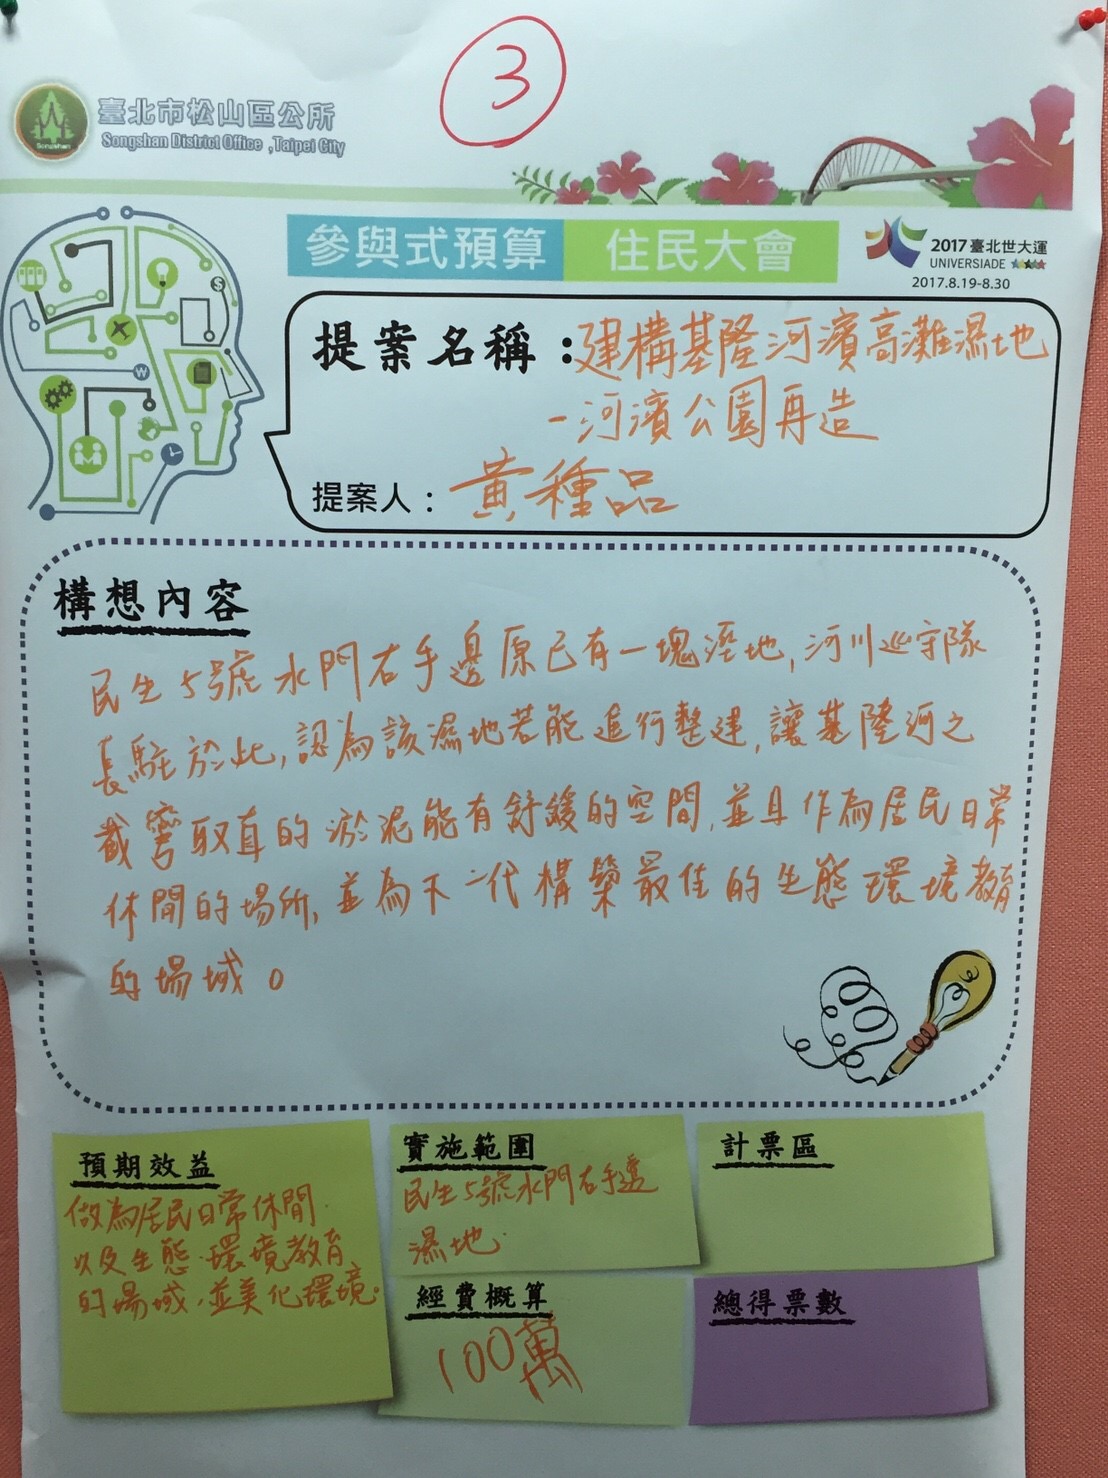 3
臺北市松山區公所
Songshan District Office ,Taipei City
Songshan
參與式預算 住民大會
2017臺北世大運
UNIVERSIADE
2017.8.19-8.30
提案名稱：建構基隆河濱高灘濕地
-河濱公園再造
提案人：黃種品
構想內容
民生5號水門右手邊原已有一塊溼地,河川巡守隊
長駐於此,認為該濕地若能進行整建,讓基隆河之
截彎取直的淤泥能有舒緩的空間,並且作為居民日常
休閒的場所,並為下一代構築最佳的生態環境教育
的場域。
預期效益
做為居民日常休閒
以及生態、環境教育
的場域,並美化環境。
實施範圍
民生5號水門右手邊
濕地.
計票區
經費概算
100萬
總得票數